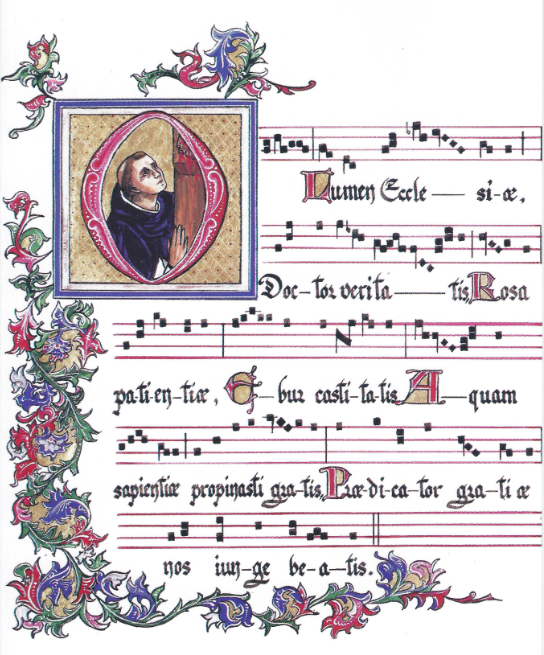 O Lumen Eccle — si-æ,
Doc-tor verita — tis Rosa
pa-ti-en-tiæ, E-bur casti-ta-tis A-quam
sapientiæ propinasti gra-tis, Præ-di-ca-tor gra-ti æ
nos iun-ge be-a-tis.